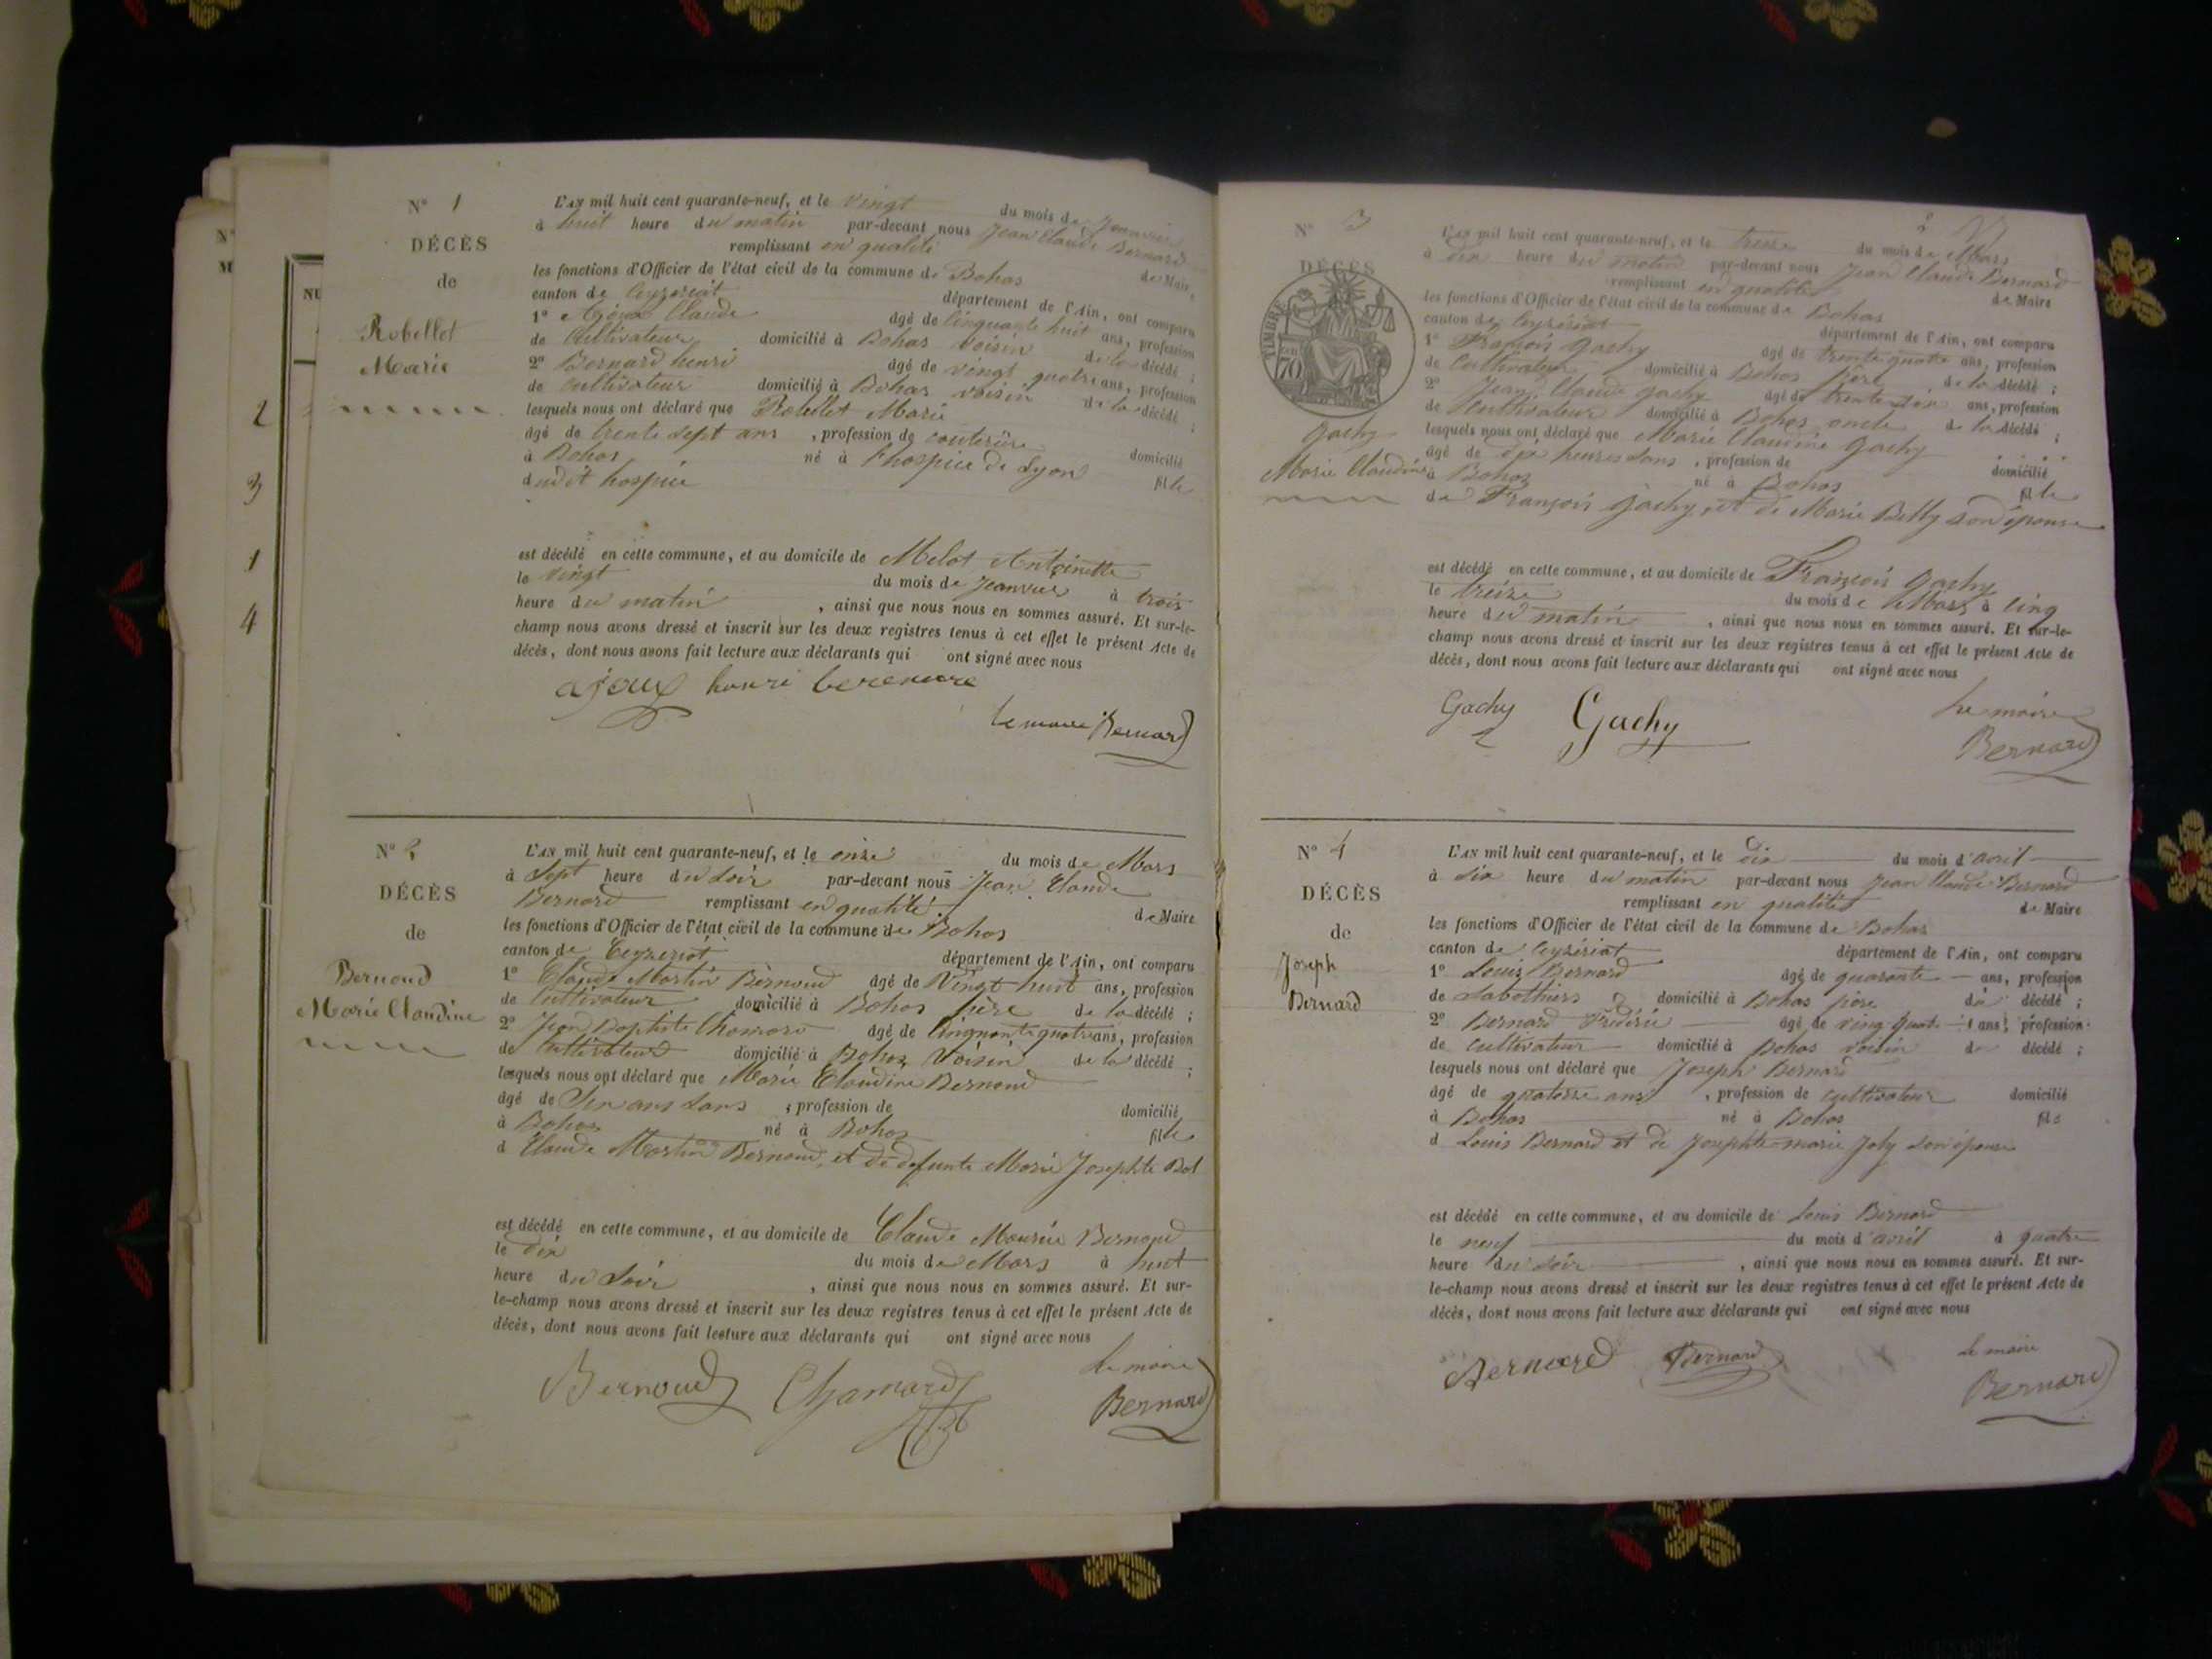 N° 1
DÉCÈS
de
Robellet
Marie
L'AN mil huit cent quarante-neuf, et le vingt du mois de Janvier
à huit heure du matin par-devant nous Jean Claude Bernard
remplissant en qualité de Maire,
les fonctions d'Officier de l'état civil de la commune de Bohas
canton de Ceyzeriat département de l'Ain, ont comparu
1° Ajoux Claude âgé de Cinquante huit ans, profession
de Cultivateur domicilié à Bohas voisin de la décédé ;
2° Bernard henri âgé de vingt quatre ans, profession
de Cultivateur domicilié à Bohas voisin de la décédé ;
lesquels nous ont déclaré que Robellet Marie
âgé de trente sept ans , profession de couterière domicilié
à Bohas né à l'hospice de Lyon fille
dudit hospice
est décédé en cette commune, et au domicile de Melot Antoinette
le vingt du mois de Janvier à trois
heure du matin , ainsi que nous nous en sommes assuré. Et sur-le-
champ nous avons dressé et inscrit sur les deux registres tenus à cet effet le présent Acte de
décès, dont nous avons fait lecture aux déclarants qui ont signé avec nous
ajoux henri
Le maire Bernard
N° 2
DÉCÈS
de
Bernoud
Marie Claudine
L'AN mil huit cent quarante-neuf, et le onze du mois de Mars
à Sept heure du Soir par-devant nous Jean Claude
Bernard remplissant en qualité de Maire
les fonctions d'Officier de l'état civil de la commune de Bohas
canton de Ceyzeriat département de l'Ain, ont comparu
1° Claude Martin Bernoud âgé de Vingt huit ans, profession
de Cultivateur domicilié à Bohas père de la décédé ;
2° Jean Baptiste Chamard âgé de Cinquante quatre ans, profession
de Cultivateur domicilié à Bohas Voisin de la décédé ;
lesquels nous ont déclaré que Marie Claudine Bernoud
âgé de ans , profession de domicilié
à Bohas né à Bohas fille
d Claude Martin Bernoud, et de defunte Marie Josephte
est décédé en cette commune, et au domicile de Claude Bernoud
le dix du mois de Mars à huit
heure du Soir , ainsi que nous nous en sommes assuré. Et sur-
le-champ nous avons dressé et inscrit sur les deux registres tenus à cet effet le présent Acte de
décès, dont nous avons fait lecture aux déclarants qui ont signé avec nous
Bernoud Chamard
Le maire
Bernard
N° 3
DÉCÈS
TIMBRE
70
Gachy
Marie Claudine
L'AN mil huit cent quarante-neuf, et le treize du mois de Mars
à dix heure du matin par-devant nous Jean Claude Bernard
remplissant en qualité de Maire
les fonctions d'Officier de l'état civil de la commune de Bohas
canton de Ceyzériat département de l'Ain, ont comparu
1° François Gachy âgé de trente quatre ans, profession
de Cultivateur domicilié à Bohas père de la décédé ;
2° Jean Claude Gachy âgé de ans, profession
de Cultivateur domicilié à Bohas oncle de la décédé ;
lesquels nous ont déclaré que Marie Claudine Gachy
âgé de heures , profession de domicilié
à Bohas né à Bohas fille
de François Gachy, et de Marie Belly son épouse
est décédé en cette commune, et au domicile de François Gachy
le treize du mois de Mars à cinq
heure du matin , ainsi que nous nous en sommes assuré. Et sur-le-
champ nous avons dressé et inscrit sur les deux registres tenus à cet effet le présent Acte de
décès, dont nous avons fait lecture aux déclarants qui ont signé avec nous
Gachy Gachy
Le maire
Bernard
N° 4
DÉCÈS
de
Joseph
Bernard
L'AN mil huit cent quarante-neuf, et le dix du mois d'avril
à six heure du matin par-devant nous Jean Claude Bernard
remplissant en qualité de Maire
les fonctions d'Officier de l'état civil de la commune de Bohas
canton de Ceyzériat département de l'Ain, ont comparu
1° Louis Bernard âgé de quarante ans, profession
de Sabothiers domicilié à Bohas père du décédé ;
2° Bernard Frédéric âgé de ving quatre ans, profession
de cultivateur domicilié à Bohas voisin du décédé ;
lesquels nous ont déclaré que Joseph Bernard
âgé de quatorze ans , profession de cultivateur domicilié
à Bohas né à Bohas fils
d Louis Bernard et de Josephte marie Joly son épouse
est décédé en cette commune, et au domicile de Louis Bernard
le neuf du mois d'avril à quatre
heure du soir , ainsi que nous nous en sommes assuré. Et sur-
le-champ nous avons dressé et inscrit sur les deux registres tenus à cet effet le présent Acte de
décès, dont nous avons fait lecture aux déclarants qui ont signé avec nous
Bernard Bernard
Le maire
Bernard